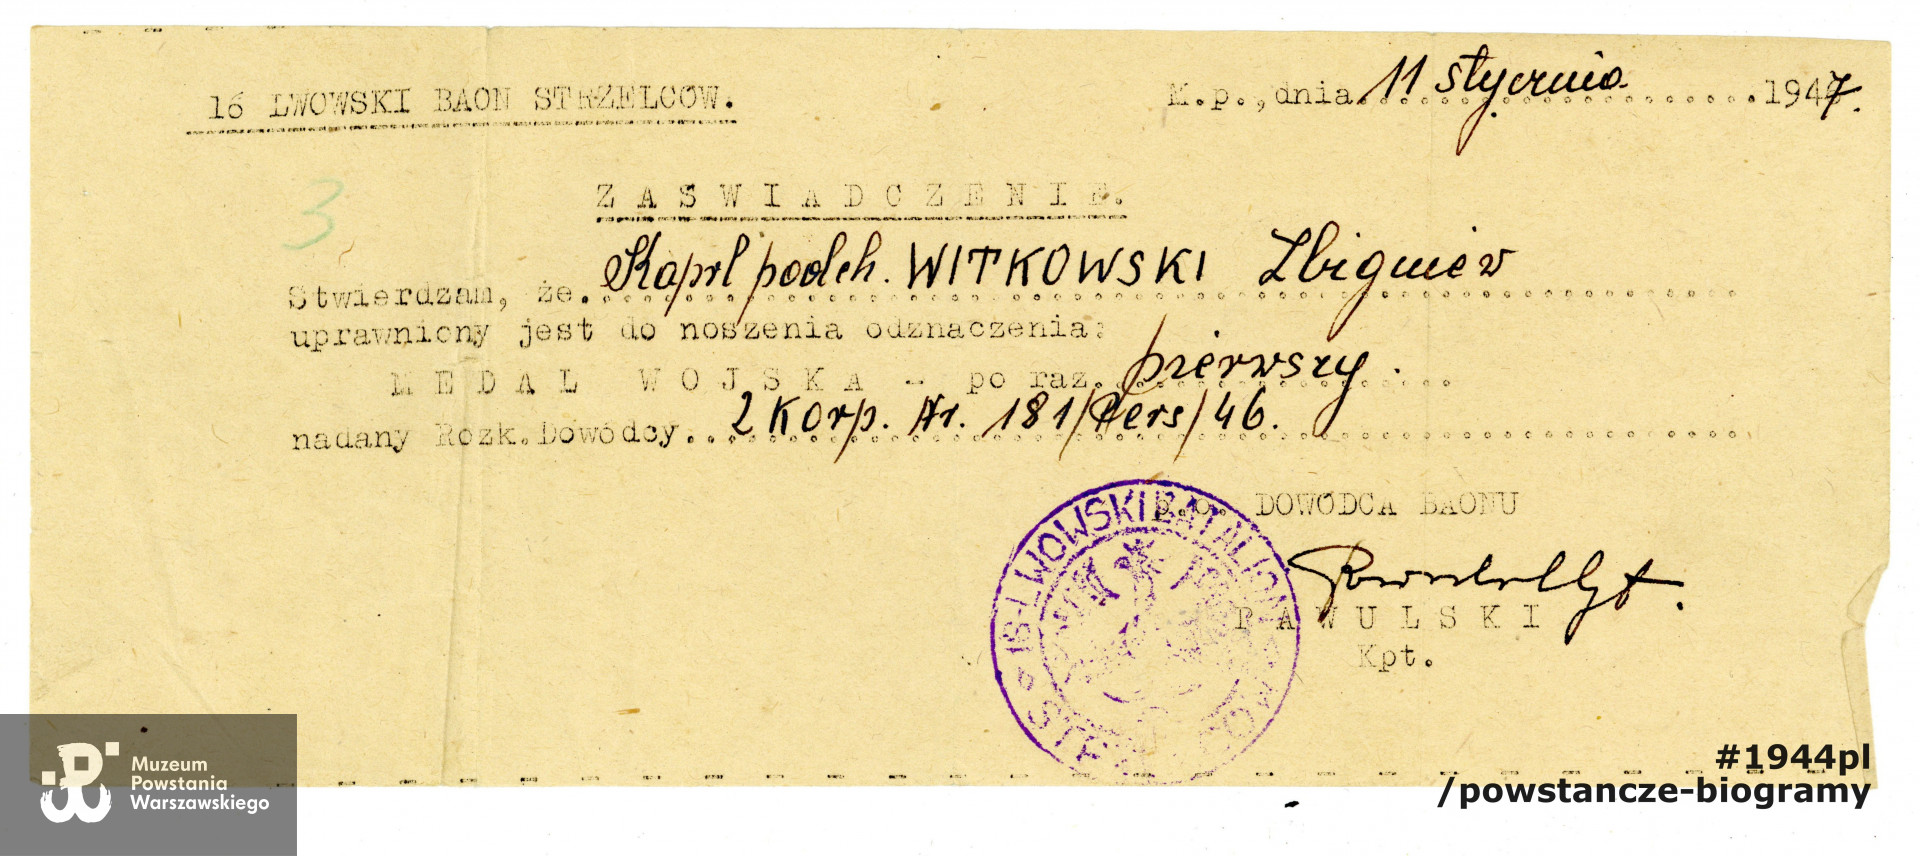 16 LWOWSKI BAON STRZELCÓW.
M.p.,dnia 11 stycznia 1947.
3
ZAŚWIADCZENIE.
Stwierdzam, że. Kaprl podch. WITKOWSKI Zbigniew
uprawniony jest do noszenia odznaczenia:
MEDAL WOJSKA - po raz. pierwszy.
nadany Rozk.Dowódcy.. 2 Korp. Nr. 181/Pers/46.
p.o. DOWÓDCA BAONU
16 LWOWSKI BATALION
PAWULSKI
Kpt.
Muzeum
Powstania
Warszawskiego
#1944pl
/powstancze-biogramy